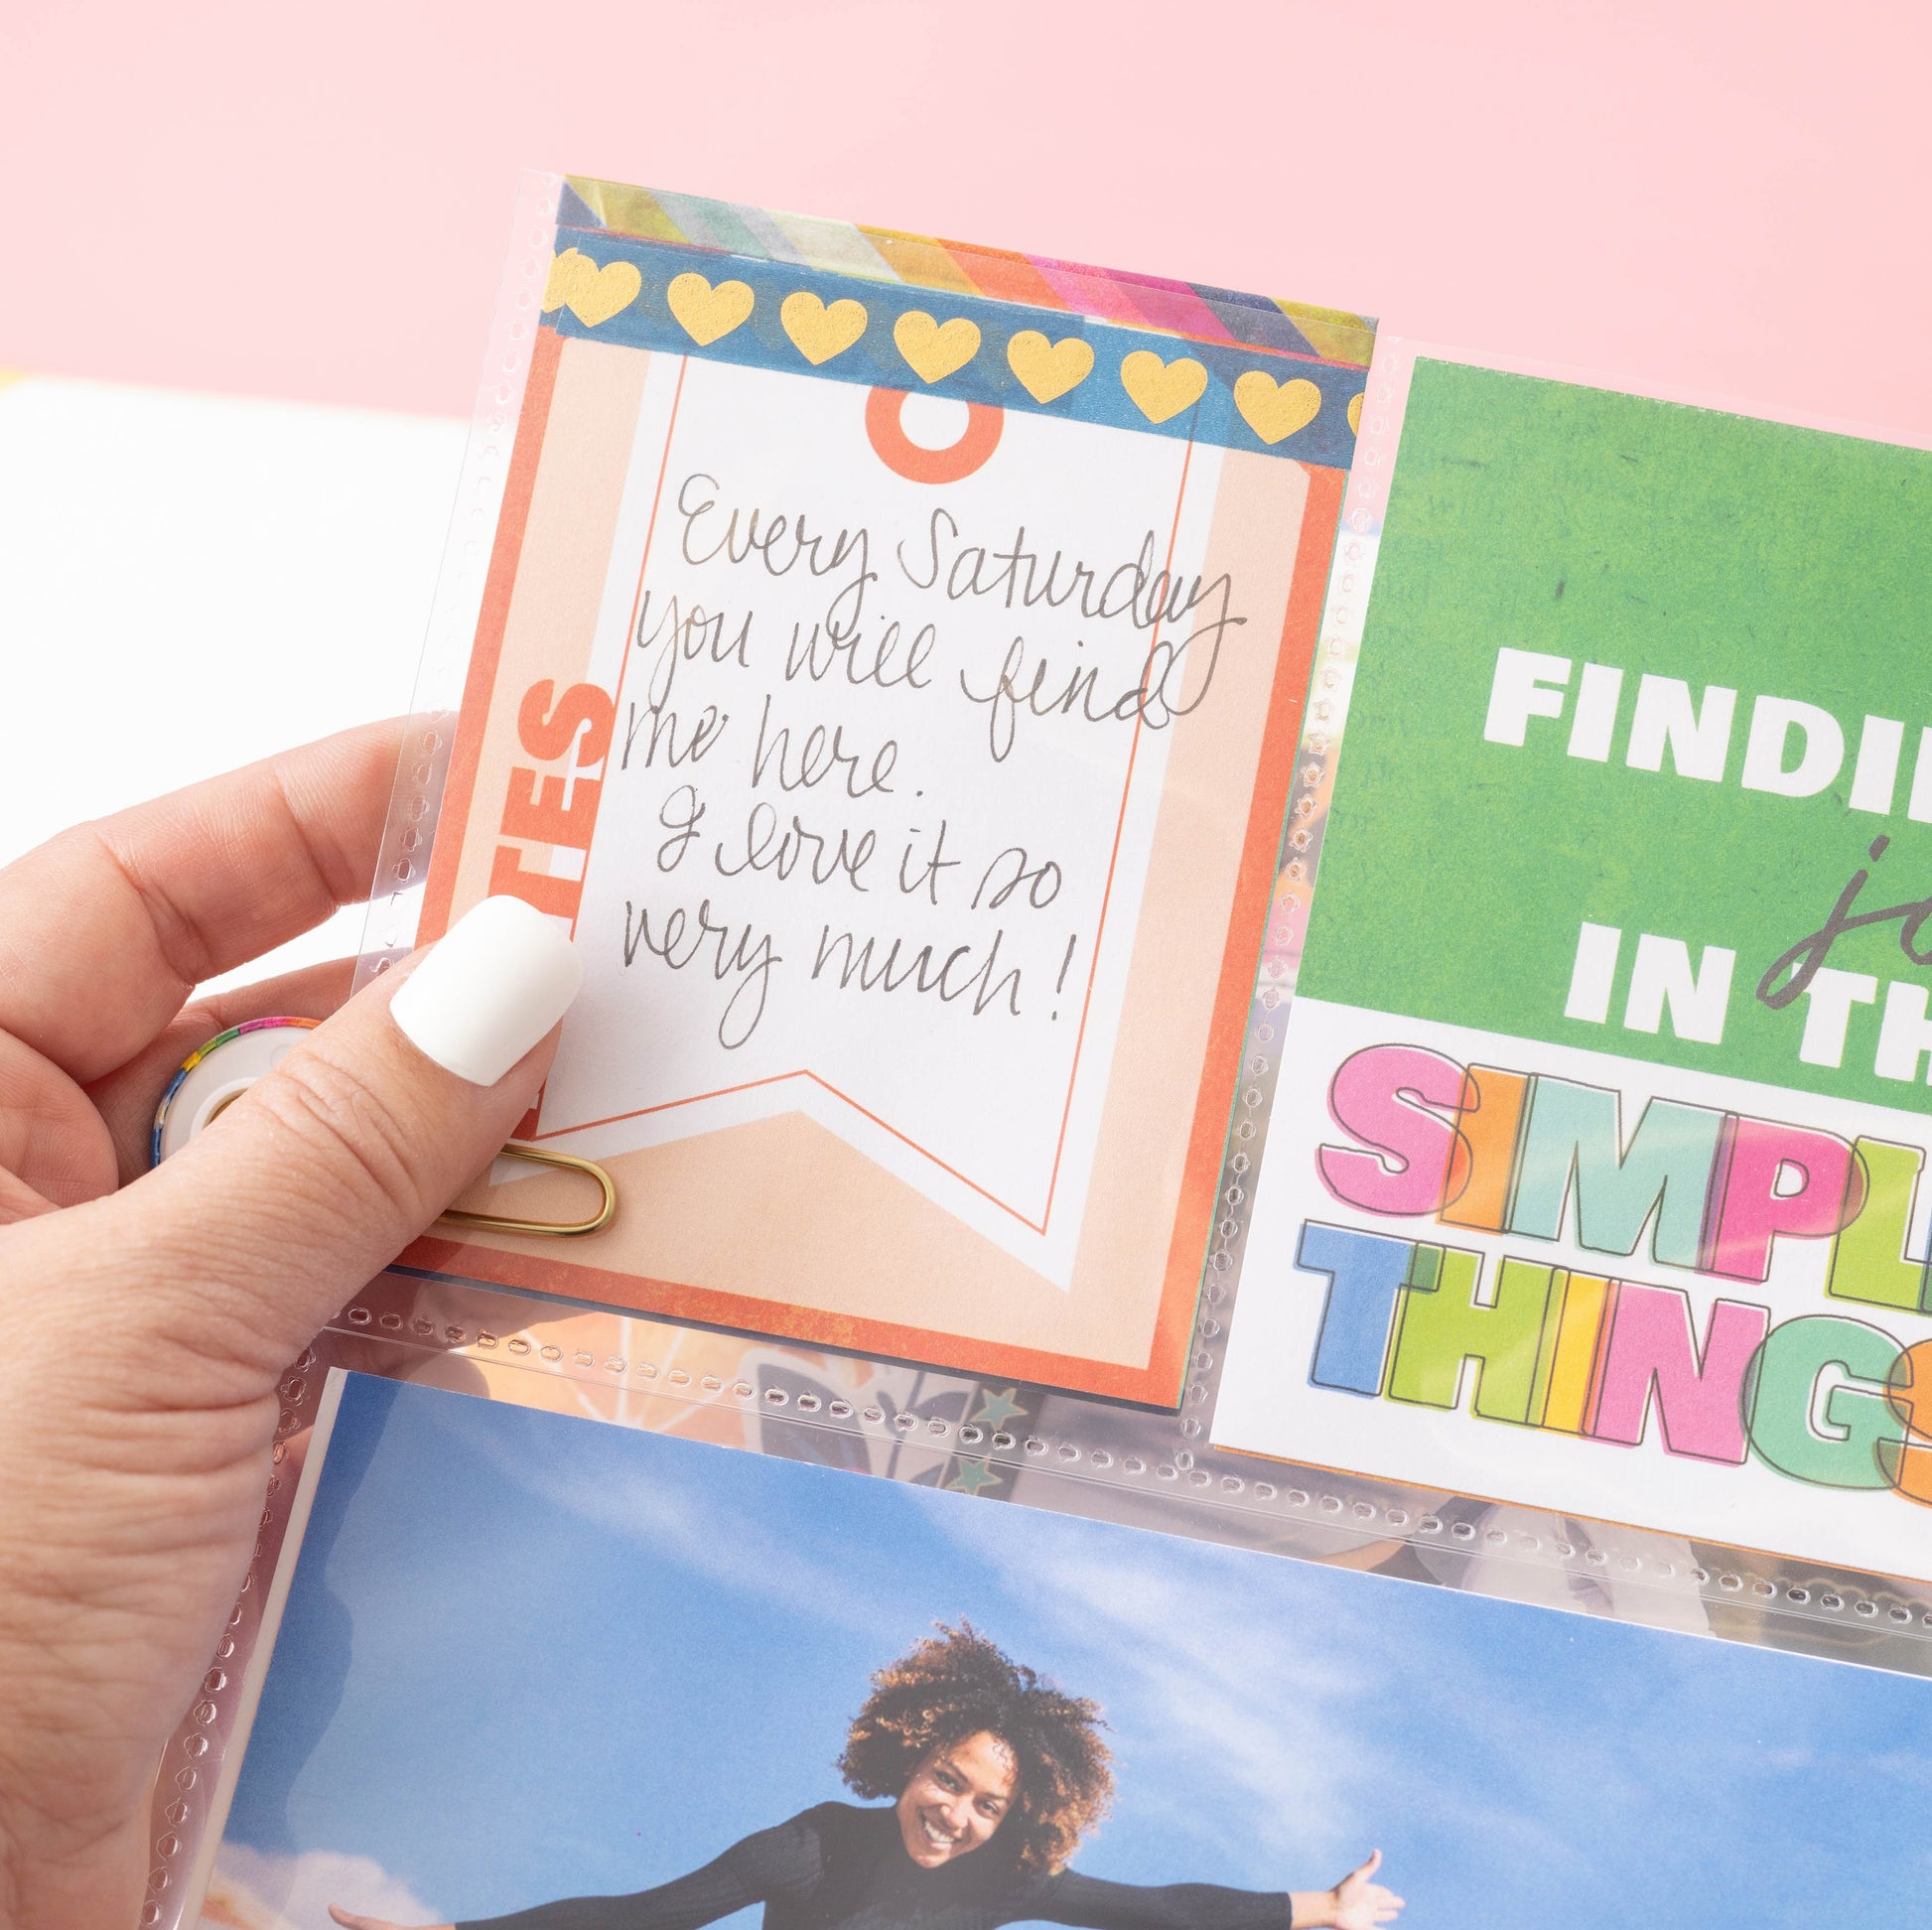 Every Saturday
you will find
me here.
I love it so
very much!
IN
SIMPL
THINGS